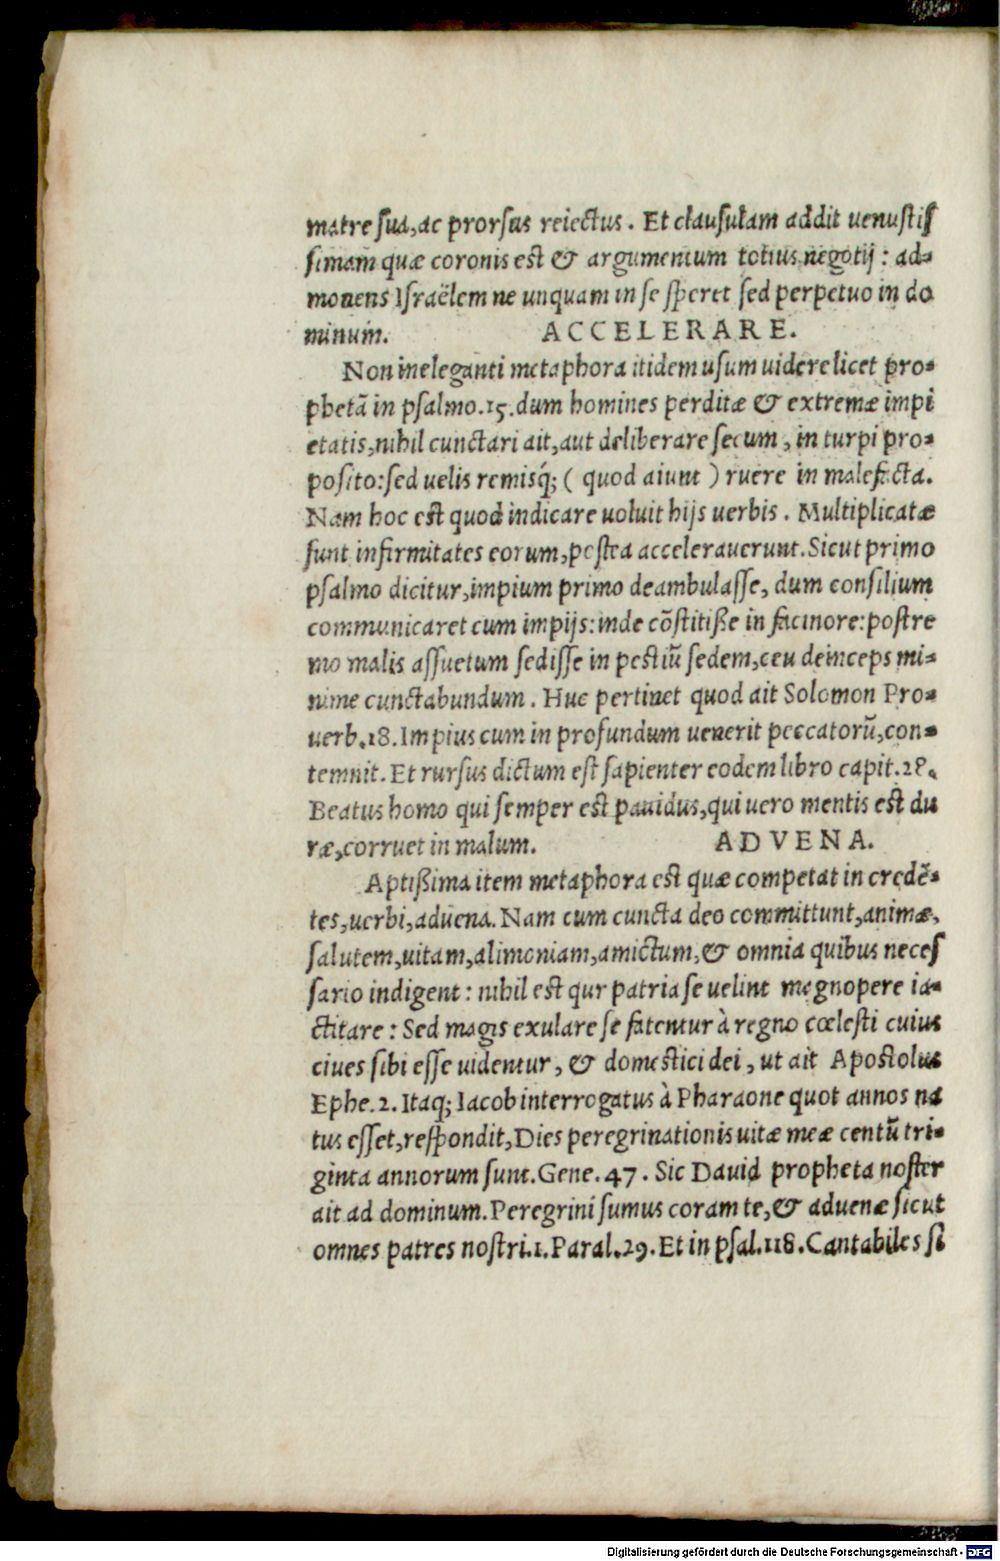 matre sua, ac prorsus reiectus. Et clausulam addit uenustis
simam quæ coronis est & argumentum totius negotij: ad-
monens Israëlem ne unquam in se speret sed perpetuo in do
minum. ACCELERARE.
Non ineleganti metaphora itidem usum uidere licet pro-
phetā in psalmo.15.dum homines perditæ & extremæ impi
etatis, nihil cunctari ait, aut deliberare secum, in turpi pro-
posito: sed uelis remisq́; (quod aiunt) ruere in malefacta.
Nam hoc est quod indicare uoluit hijs uerbis. Multiplicatæ
sunt infirmitates eorum, postea accelerauerunt. Sicut primo
psalmo dicitur, impium primo deambulasse, dum consilium
communicaret cum impijs: inde cōstitiße in facinore: postre
mo malis assuetum sedisse in pestiū sedem, ceu deinceps mi-
nime cunctabundum. Huc pertinet quod ait Solomon Pro-
uerb.18. Impius cum in profundum uenerit peccatorū, con-
temnit. Et rursus dictum est sapienter eodem libro capit.28.
Beatus homo qui semper est pauidus, qui uero mentis est du
ræ, corruet in malum. ADVENA.
Aptißima item metaphora est quæ competat in credē-
tes, uerbi, aduena. Nam cum cuncta deo committunt, animæ,
salutem, uitam, alimoniam, amictum, & omnia quibus neces
sario indigent: nihil est qur patria se uelint magnopere ia-
ctitare: Sed magis exulare se fatentur à regno cœlesti cuius
ciues sibi esse uidentur, & domestici dei, ut ait Apostolus
Ephe.2. Itaq; Iacob interrogatus à Pharaone quot annos na
tus esset, respondit, Dies peregrinationis uitæ meæ centū tri-
ginta annorum sunt. Gene.47. Sic Dauid propheta noster
ait ad dominum. Peregrini sumus coram te, & aduenæ sicut
omnes patres nostri.1. Paral.29. Et in psal.118. Cantabiles si
Digitalisierung gefördert durch die Deutsche Forschungsgemeinschaft - DFG